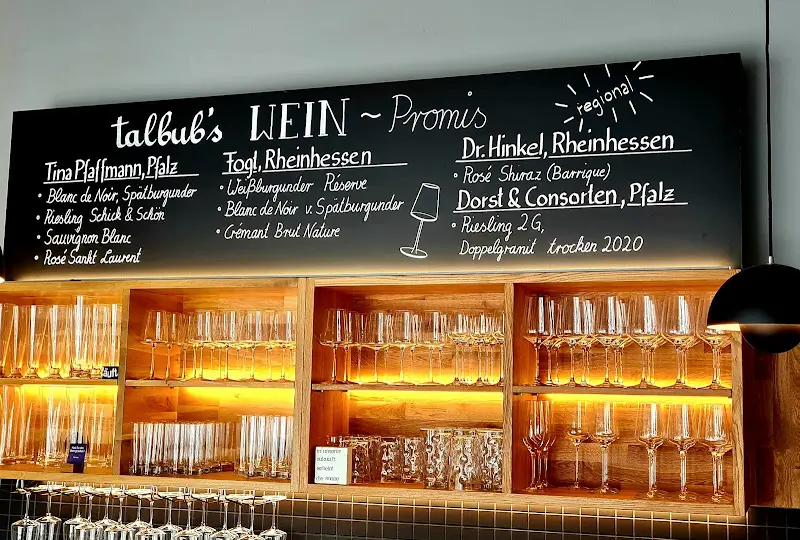 talbub's WEIN ~ Promis
regional
Tina Pfaffmann, Pfalz
• Blanc de Noir, Spätburgunder
• Riesling Schick & Schön
• Sauvignon Blanc
• Rosé Sankt Laurent
Fogt, Rheinhessen
• Weißburgunder Réserve
• Blanc de Noir v. Spätburgunder
• Crémant Brut Nature
Dr. Hinkel, Rheinhessen
• Rosé Shiraz (Barrique)
Dorst & Consorten, Pfalz
• Riesling 2G,
Doppelgranit trocken 2020
läuft